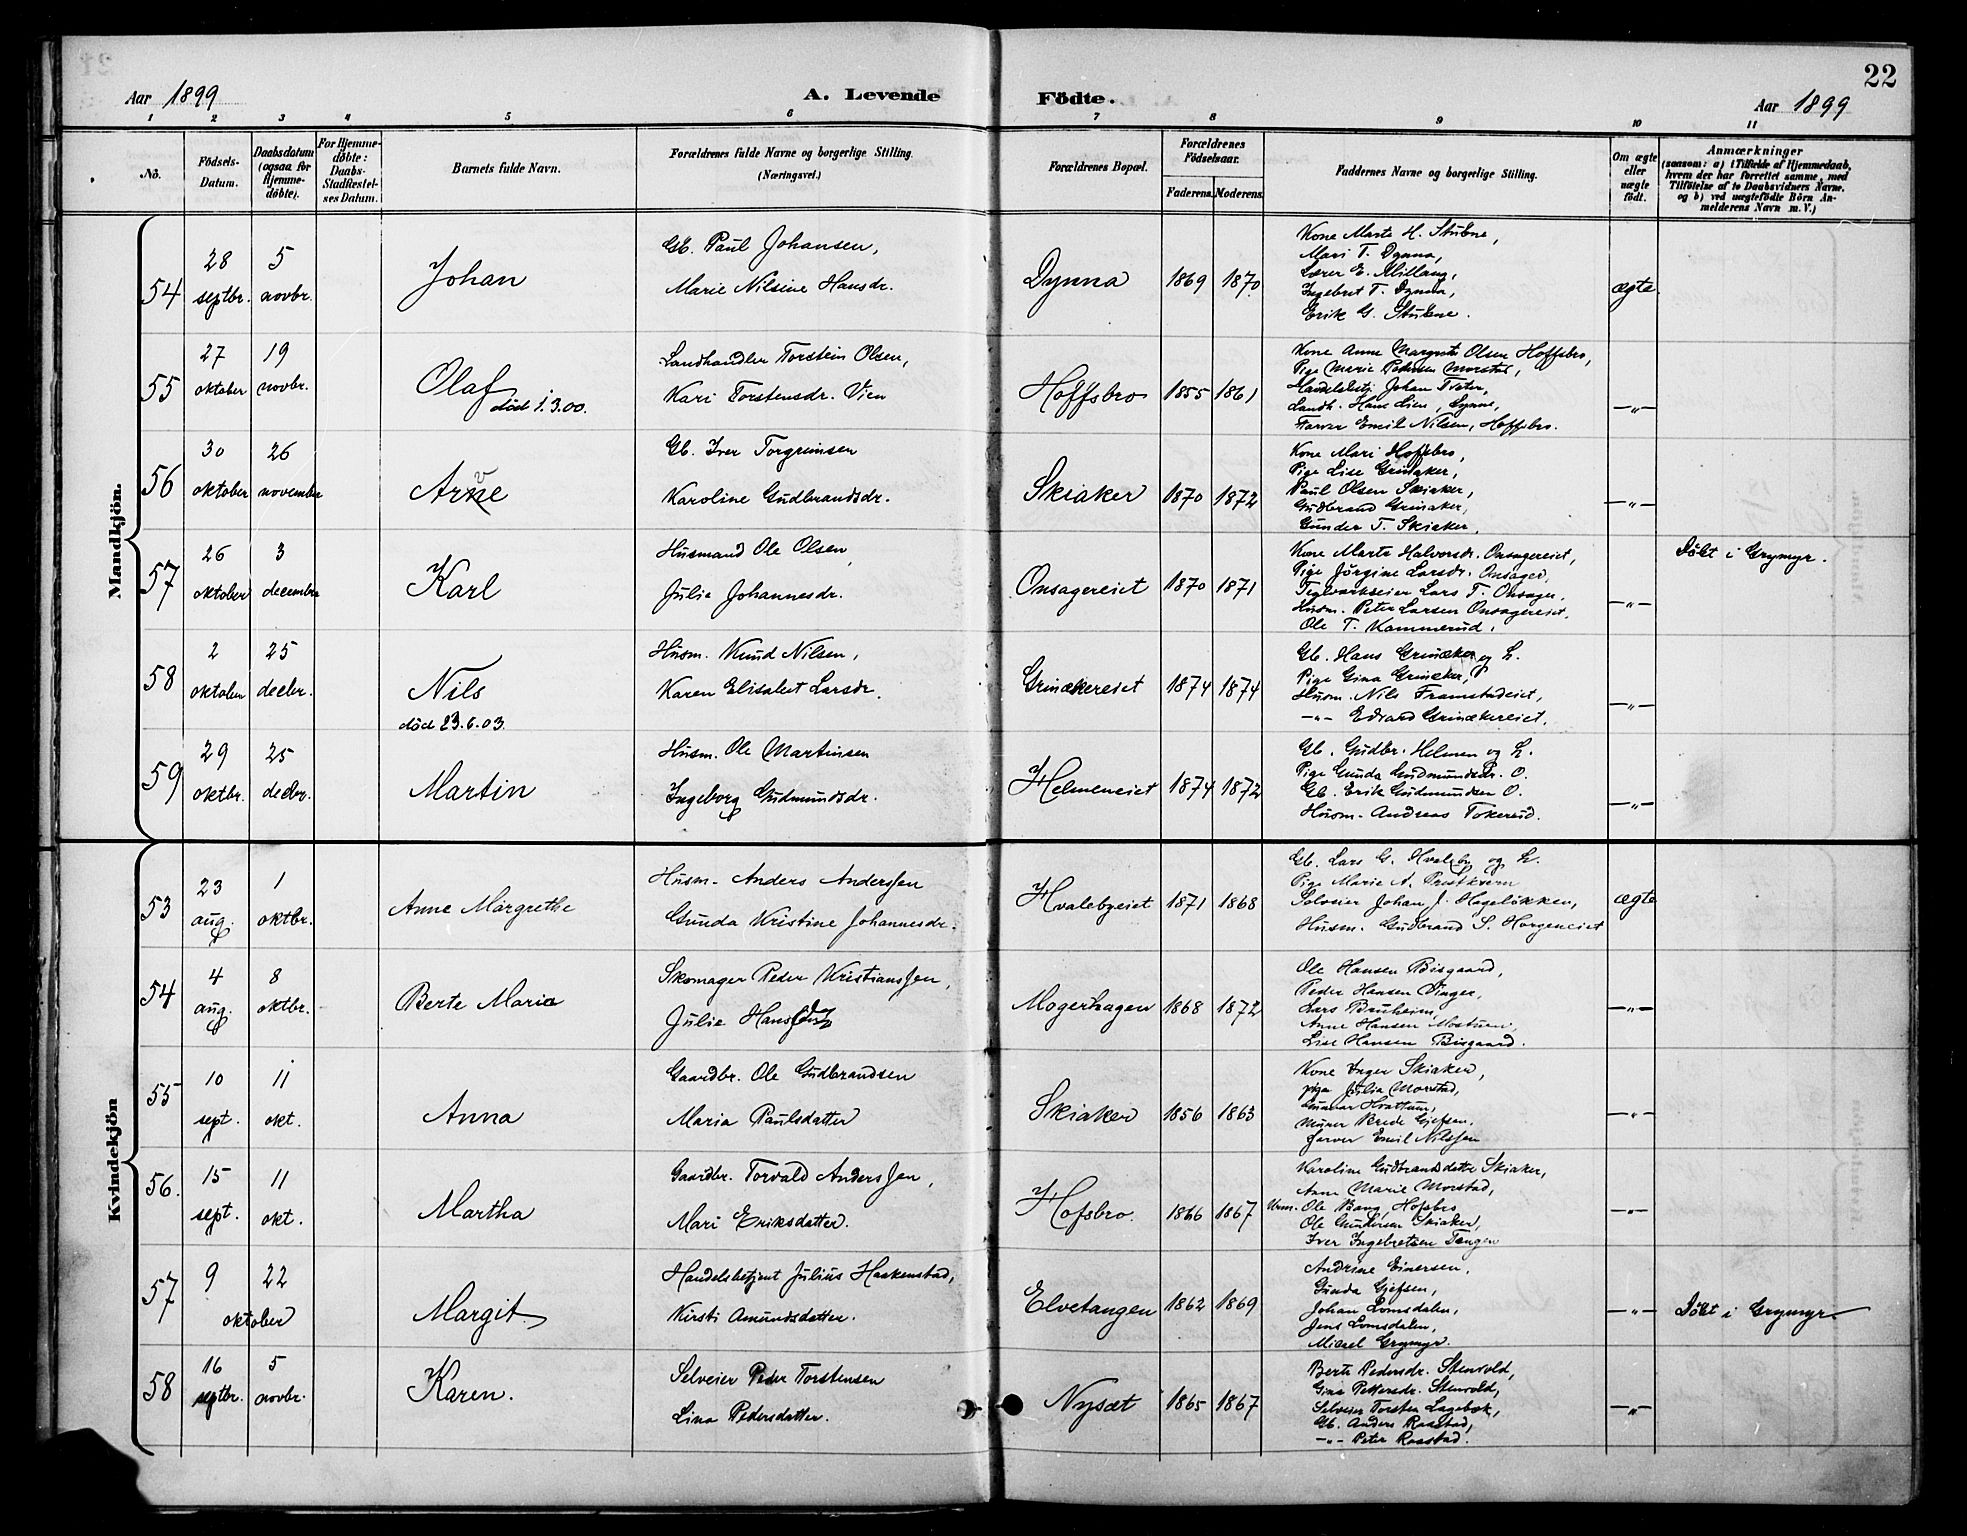 Aar 1899 A. Levende Födte. Aar 1899 22
1 2 3 4 5 6 7 8 9 10 11
No. Födsels-Datum. Daabsdatum (ogsaa for Hjemmedøbte). For Hjemmedøbte: Daabs-Stadfæstelses Datum. Barnets fulde Navn. Forældrenes fulde Navne og borgerlige Stilling. (Næringsvei.) Forældrenes Bopæl. Forældrenes Födselsaar. Faderens. Moderens. Faddernes Navne og borgerlige Stilling. Om ægte eller uægte født. Anmærkninger (saasom: a) i Tilfælde af Hjemmedaab, hvem der har forrettet samme, med Tilføielse af to Daabsvidners Navne, og b) ved uægtefødte Börn Anmelderens Navn m. V.)
Mandkjön.
54 28 septbr. 5 novbr. Johan
Gb. Paul Johansen,
Marie Nilsine Hansdr.
Dynna 1869 1870
Kone Marte H. Stubne,
Mari T. Dynna,
Lærer E. Millang,
Ingebret T. Dynna,
Erik G. Stubne.
ægte.
55 27 oktober 19 novbr. Olaf død 1.3.00.
Landhandler Torstein Olsen,
Kari Torstensdr. Vien
Hoffsbro 1855 1861
Kone Anne Margrete Olsen Hoffsbro,
Pige Marie Pedersen Morstad,
Handelsbetj. Johan Tveter,
Landh. Hans Lien, Lynne,
Farver Emil Nilsen, Hoffsbro.
—„—
56 30 oktober 26 november Arne
v
Gb. Iver Torgrimsen
Karoline Gudbrandsdr.
Skiaker 1870 1872
Kone Mari Hofsbro,
Pige Lise Grinaker,
Paul Olsen Skiaker,
Gudbrand Grinaker,
Gunder T. Skiaker.
—„—
57 26 oktober 3 decembr Karl
Husmand Ole Olsen,
Julie Johannesdr.
Onsagereiet 1870 1871
Kone Marte Halvorsdr. Onsagereiet,
Pige Jörgine Larsdr. Onsager,
Teglværkseier Lars T. Onsager,
Husm. Peter Larsen Onsagereiet,
Ole T. Kammerud.
—„— Döbt i Grymyr.
58 2 oktober 25 decbr. Nils
død 23.6.03.
Husm. Knud Nilsen,
Karen Elisabet Larsdr.
Grinakereiet 1874 1874
Gb. Hans Grinaker og h.
Pige Gina Grinaker,
Husm. Nils Framstadeiet,
—„— Edvard Grinakereiet.
—„—
59 29 oktbr. 25 decbr. Martin
Husm. Ole Martinsen
Ingeborg Gudmundsdr.
Helmeneiet 1874 1872
Gb. Gudbr. Helmen og h.
Pige Gunda Gudmundsdr. O.
Gb. Erik Gudmundsen O.
Husm. Andreas Tokerud.
—„—
Kvindekjön
53 23 aug. 1 oktbr. Anne Margrethe
Husm. Anders Anderssen
Gunda Kristine Johannesdr.
Hvalebyeiet 1871 1868
Gb. Lars G. Hvaleby og h.
Pige Marie A. Prestkvern
Selveier Johan J. Hageløkken,
Husm. Gudbrand S. Horgeneiet
ægte
54 4 aug. 8 oktbr. Berte Marie
Skomager Peder Kristianssen,
Julie Hansdr
Mogerhagen 1868 1872
Ole Hansen Bisgaard,
Peder Hansen Vinger,
Lars Bruheim,
Anne Hansen Mostuen,
Lise Hansen Bisgaard.
—„—
55 10 sept. 11 okt. Anna
Gaardbr. Ole Gudbrandsen
Maria Paulsdatter
Skiaker 1856 1863
Kone Inger Skiaker,
pige Julia Morstad,
Gunnar Hvattum,
Murer Brede Gjefsen,
farver Emil Nilssen
—„—
56. 15 sept. 11 okt. Martha
Gaardbr. Torvald Anderssen,
Mari Eriksdatter.
Hofsbro. 1866 1867
Karoline Gudbrandsdatter Skiaker,
Anne Marie Morstad,
Urm. Ole Bang, Hofsbro
Ole Gundersen Skiaker,
Iver Ingebretsen Tangen
—„—
57 9 22 oktober Margit
Handelsbetjent Julius Haakenstad,
Kirsti Amundsdatter.
Elvetangen 1862 1869
Andrine Einersen,
Gunda Gjefsen,
Johan Lomsdalen,
Jens Lomsdalen,
Mikael Grymyr.
—„— Döbt i Grymyr
58 16 septbr. 5 novbr. Karen.
Selveier Peder Torstensen
Lina Pedersdatter.
Nysæt 1865 1867
Berte Pedersdr. Stenvold,
Gina Pettersdr. Stenvold,
Selveier Torsten Lagebæk,
Gb. Anders Raastad,
—„— Peter Raastad.
—„—